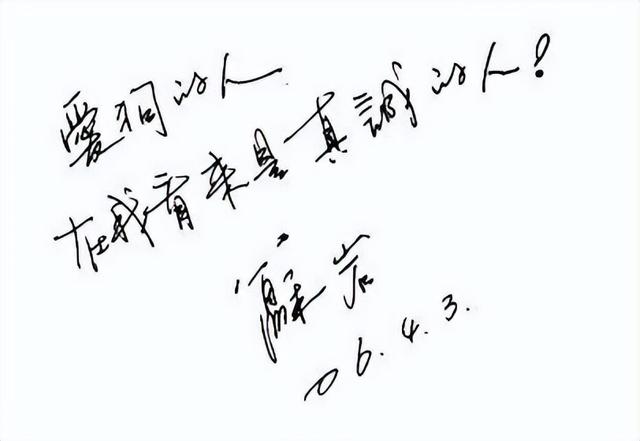 愛狗的人
在我看来是真誠的人！
岩
06.4.3.